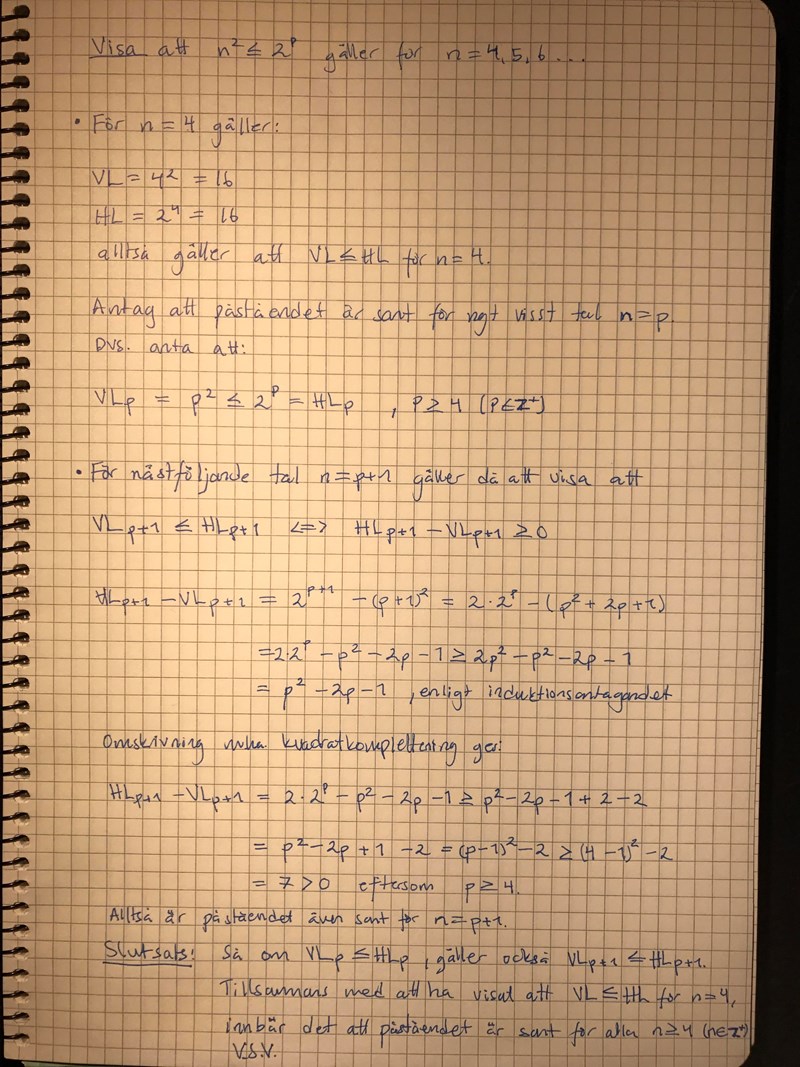 Visa att n² ≤ 2ᵖ gäller för n = 4, 5, 6 ...
• För n = 4 gäller:
VL = 4² = 16
HL = 2⁴ = 16
alltså gäller att VL ≤ HL för n = 4.
Antag att påståendet är sant för ngt visst tal n = p.
Dvs. anta att:
VLp = p² ≤ 2ᵖ = HLp , p ≥ 4 (p ∈ Z⁺)
• För nästföljande tal n = p+1 gäller då att visa att
VLp+1 ≤ HLp+1 <=> HLp+1 − VLp+1 ≥ 0
HLp+1 − VLp+1 = 2ᵖ⁺¹ − (p+1)² = 2·2ᵖ − (p² + 2p + 1)
= 2·2ᵖ − p² − 2p − 1 ≥ 2p² − p² − 2p − 1
= p² − 2p − 1 , enligt induktionsantagandet
Omskrivning mha. kvadratkomplettering ger:
HLp+1 − VLp+1 = 2·2ᵖ − p² − 2p − 1 ≥ p² − 2p − 1 + 2 − 2
= p² − 2p + 1 − 2 = (p−1)² − 2 ≥ (4−1)² − 2
= 7 > 0 eftersom p ≥ 4.
Alltså är påståendet även sant för n = p+1.
Slutsats: Så om VLp ≤ HLp , gäller också VLp+1 ≤ HLp+1.
Tillsammans med att ha visat att VL ≤ HL för n = 4,
innbär det att påståendet är sant för alla n ≥ 4 (n ∈ Z⁺)
V.S.V.